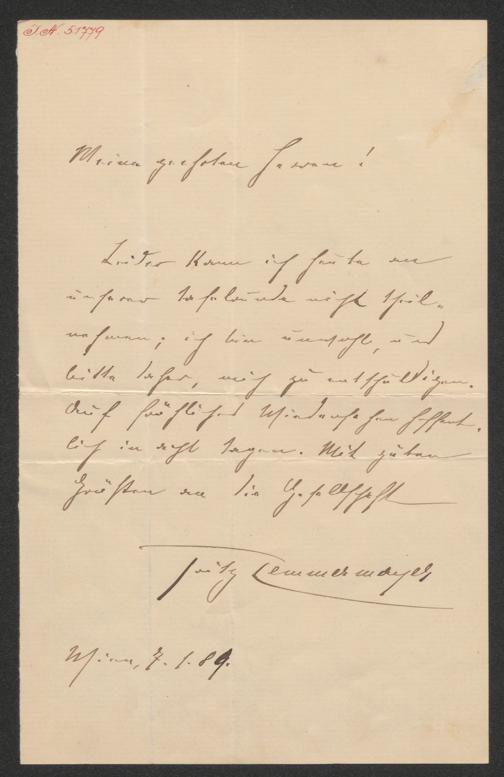 I.N. 51779
Meine geehrten Herren!
Leider kann ich heute an
unserer Tafelrunde nicht theil-
nehmen; ich bin unwohl, und
bitte daher, mich zu entschuldigen.
Auf fröhliches Wiedersehen hoffent-
lich in acht Tagen. Mit guten
Grüßen an die Gesellschaft
Fritz Lemmermayer
Wien, 7. 1. 89.